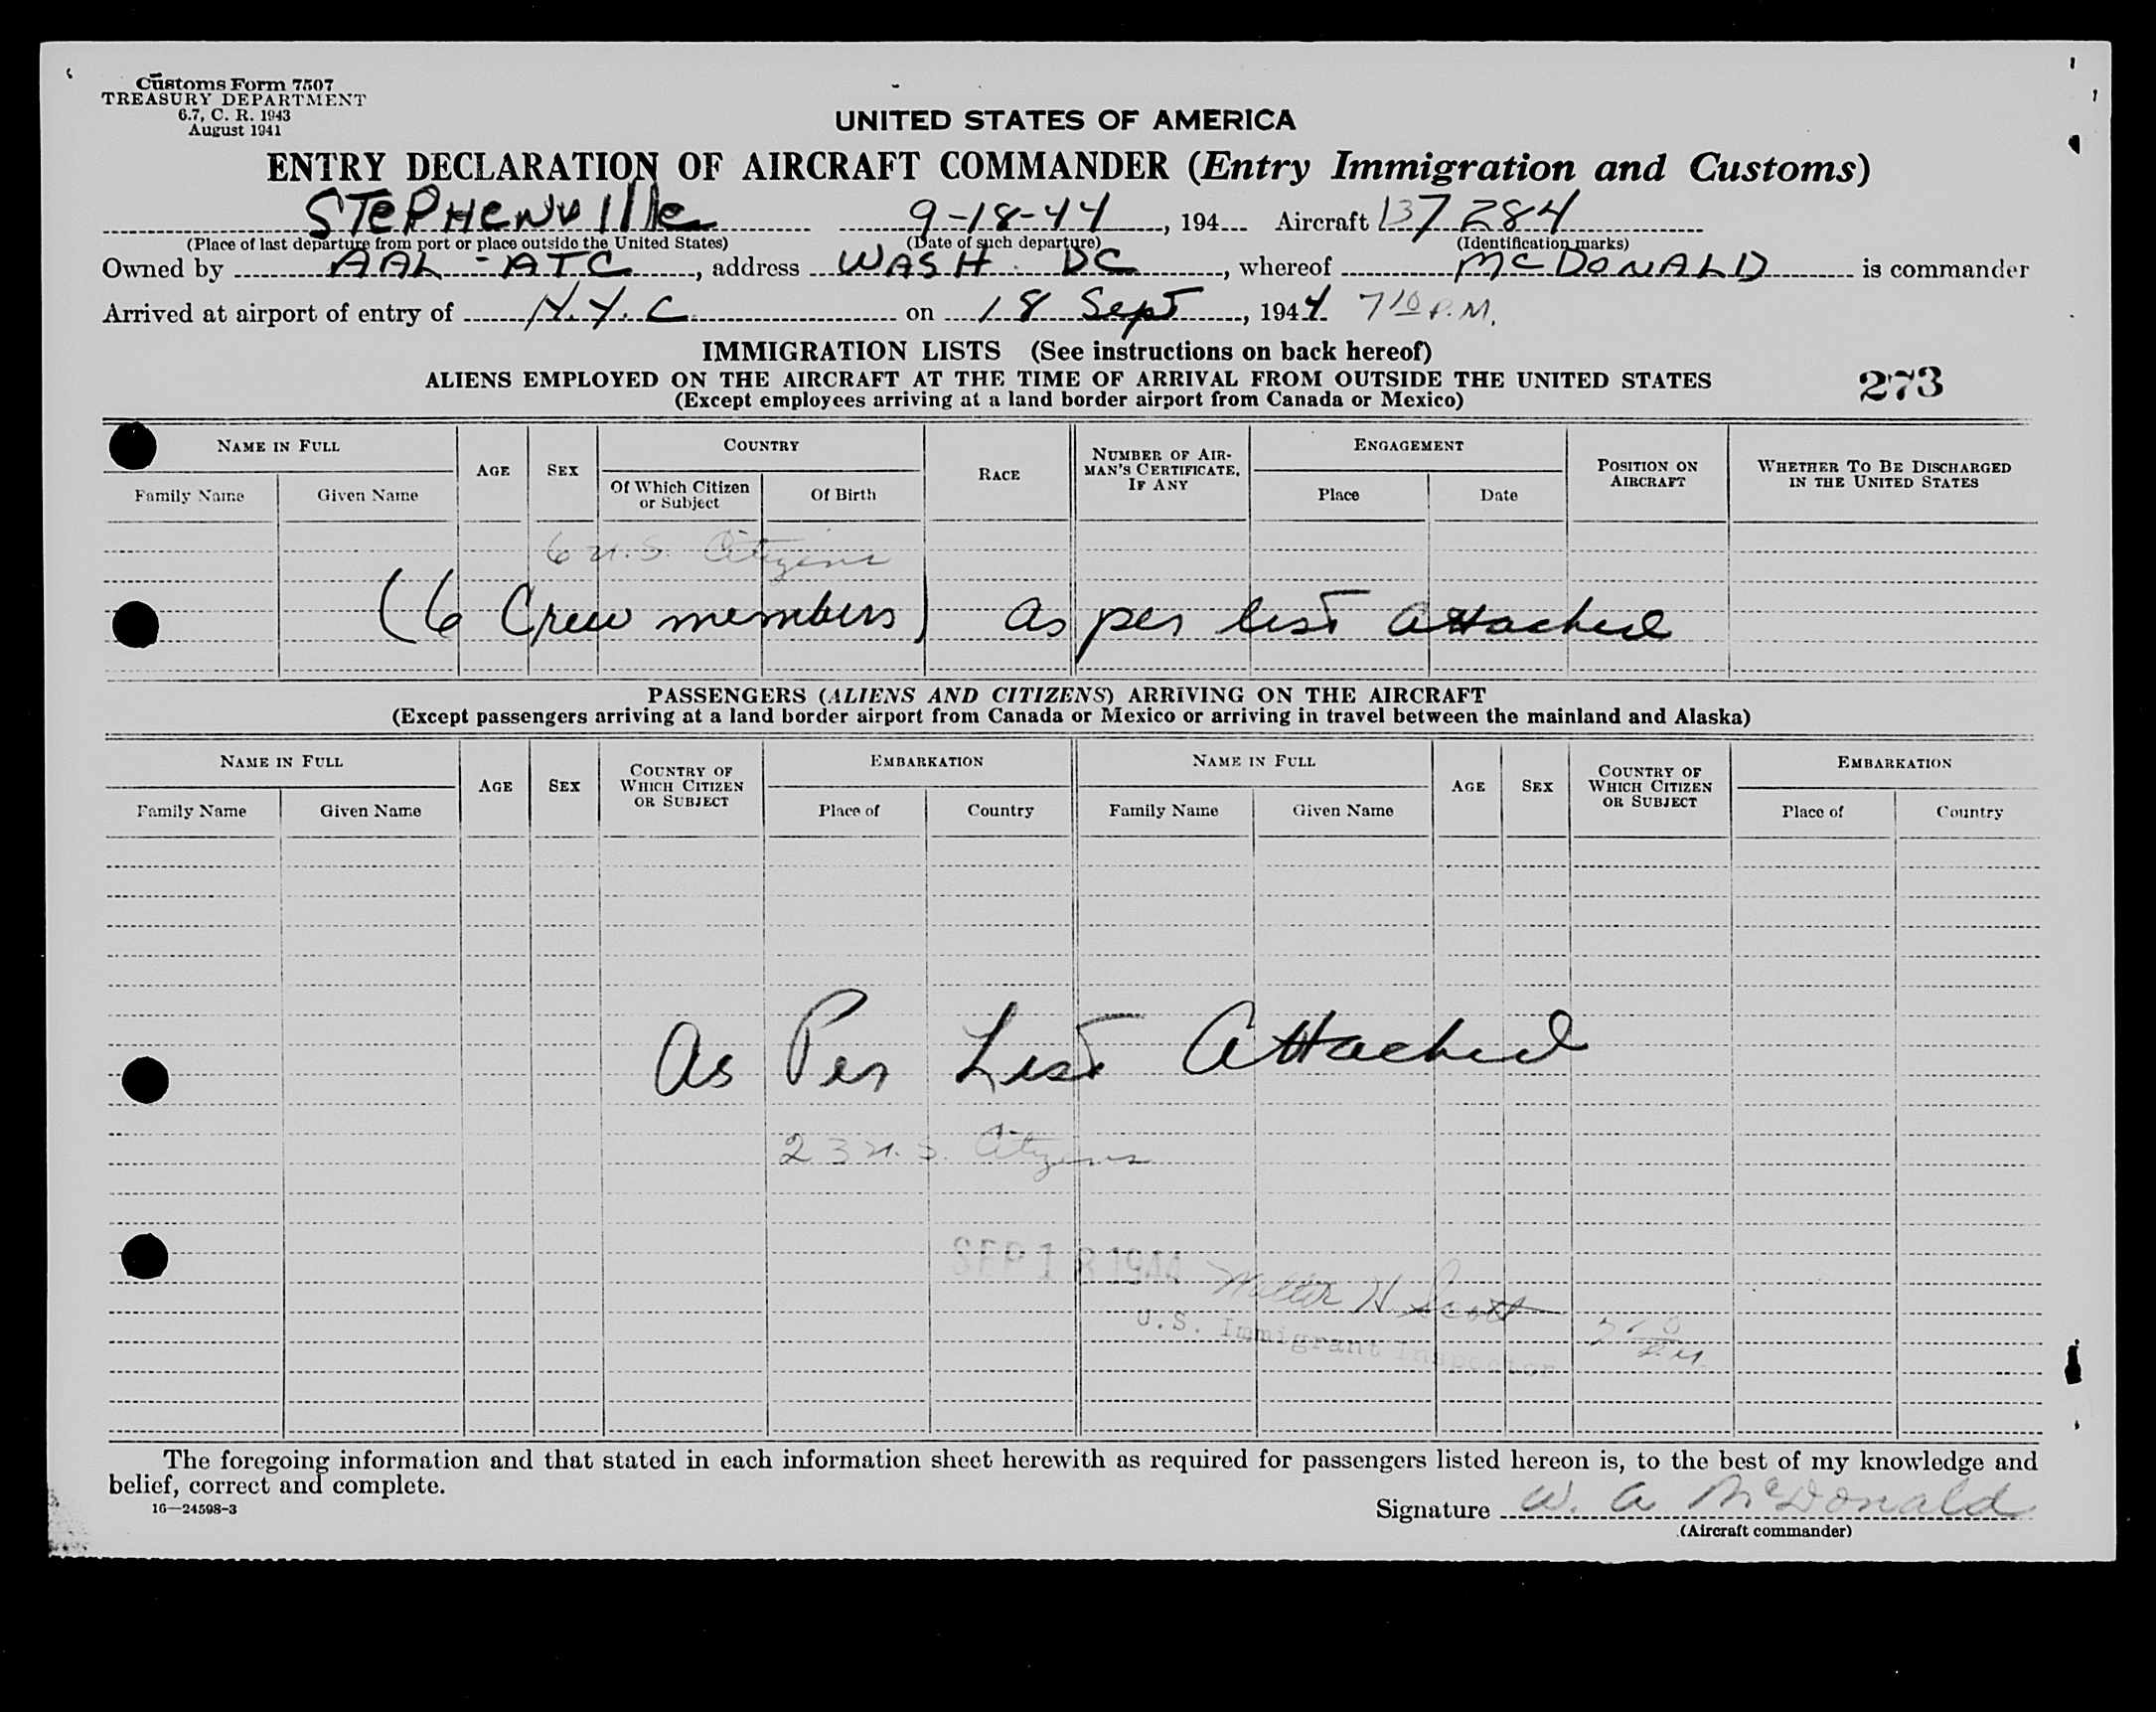 Customs Form 7507
TREASURY DEPARTMENT
6.7, C. R. 1943
August 1941
UNITED STATES OF AMERICA
ENTRY DECLARATION OF AIRCRAFT COMMANDER (Entry Immigration and Customs)
STePHeNVIlle 9-18-44, 194 Aircraft 137284
(Place of last departure from port or place outside the United States) (Date of such departure) (Identification marks)
Owned by AAL - ATC, address WASH. DC, whereof McDONALD is commander
Arrived at airport of entry of N.Y.C on 18 Sept, 1944 7 10 P.M.
IMMIGRATION LISTS (See instructions on back hereof)
ALIENS EMPLOYED ON THE AIRCRAFT AT THE TIME OF ARRIVAL FROM OUTSIDE THE UNITED STATES
273
(Except employees arriving at a land border airport from Canada or Mexico)
NAME IN FULL AGE SEX COUNTRY RACE NUMBER OF AIRMAN'S CERTIFICATE, IF ANY ENGAGEMENT POSITION ON AIRCRAFT WHETHER TO BE DISCHARGED IN THE UNITED STATES
Family Name Given Name Of Which Citizen or Subject Of Birth Place Date
6 U.S. Citizens
(6 Crew members) as per list attached
PASSENGERS (ALIENS AND CITIZENS) ARRIVING ON THE AIRCRAFT
(Except passengers arriving at a land border airport from Canada or Mexico or arriving in travel between the mainland and Alaska)
NAME IN FULL AGE SEX COUNTRY OF WHICH CITIZEN OR SUBJECT EMBARKATION NAME IN FULL AGE SEX COUNTRY OF WHICH CITIZEN OR SUBJECT EMBARKATION
Family Name Given Name Place of Country Family Name Given Name Place of Country
As Per List Attached
23 U.S. Citizens
SEP 18 1944 Walter H. Scott
U.S. Immigrant Inspector
The foregoing information and that stated in each information sheet herewith as required for passengers listed hereon is, to the best of my knowledge and
belief, correct and complete.
16—24598-3
Signature W. A. McDonald
(Aircraft commander)